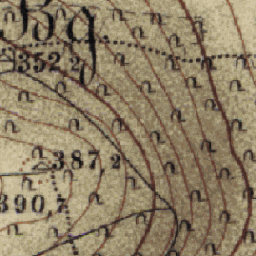 Bg.
352,2
387,2
390,7